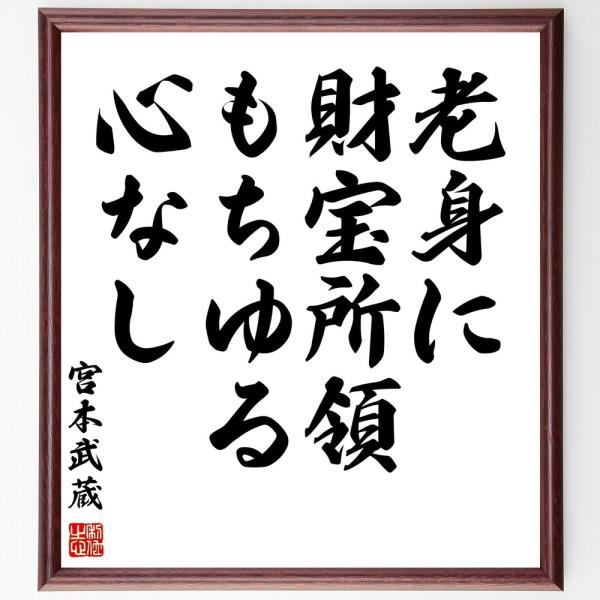 老身に
財宝所領
もちゆる
心なし
宮本武蔵